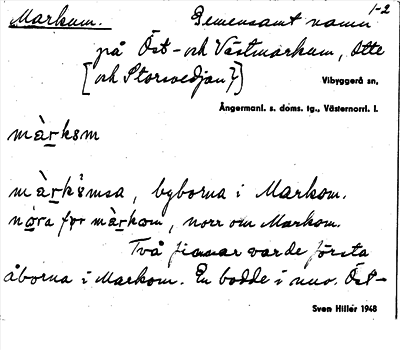 Markum. Gemensamt namn 1-2
på Öst- och Västmarkum, Otte
[och Storsvedjan?)
Vibyggerå sn,
Ångermanl. s. doms. tg., Västernorrl. l.
màrkøm
màrkǿmsa, byborna i Markom.
nǫra fǫr màrkom, norr om Markom.
Två finnar varde första
åborna i Markom. En bodde i nuv. Öst-
Sven Hillér 1948